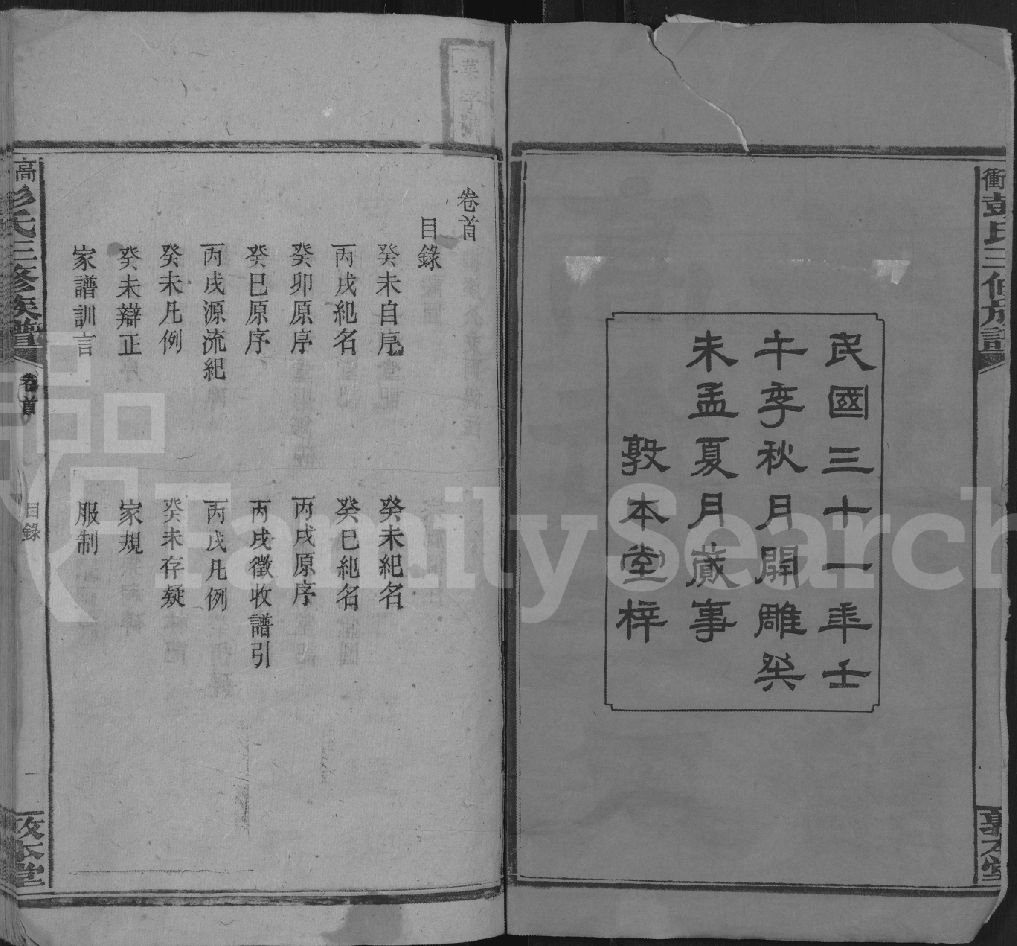 衝彭氏三修族譜
敦本堂
民國三十一年壬
午季秋月開雕癸
未孟夏月蕆事
敦本堂梓
卷首
目錄
癸未自序
癸未紀名
丙戌紀名
癸巳紀名
癸卯原序
丙戌原序
癸巳原序
丙戌徵收譜引
丙戌源流紀
丙戌凡例
癸未凡例
癸未存疑
癸未辯正
家規
家譜訓言
服制
高彭氏三修族譜
卷首
目錄
一
敦本堂
FamilySearch